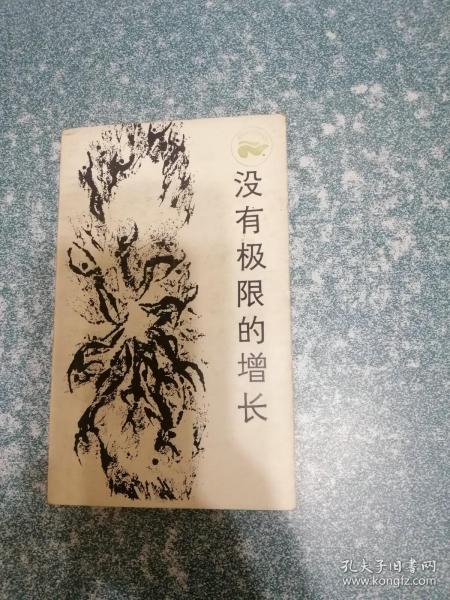 没有极限的增长
孔夫子旧书网
www.kongfz.com